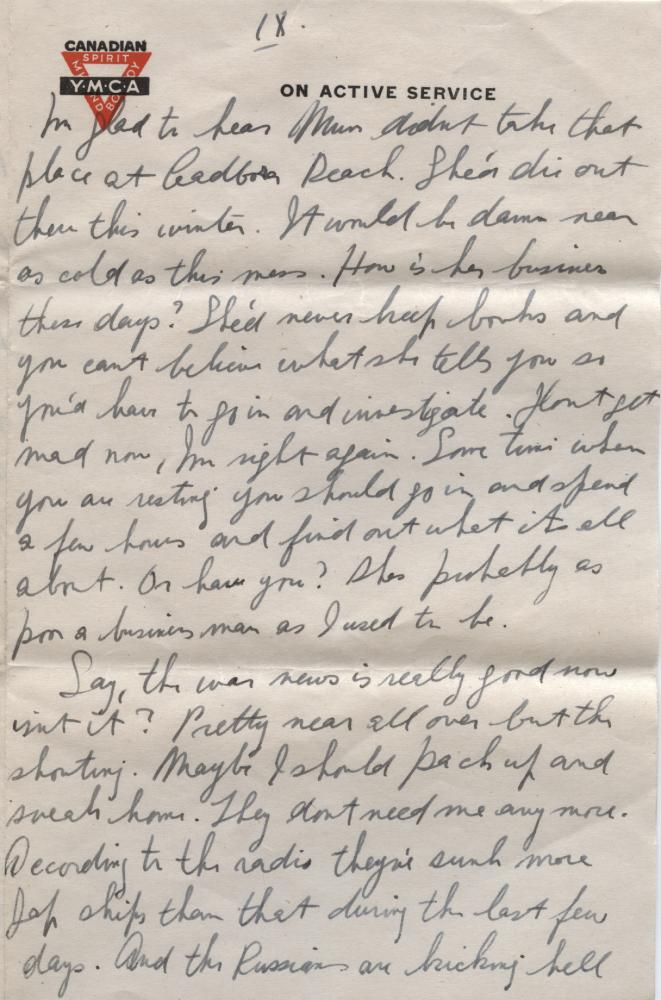 IX.
CANADIAN
SPIRIT
Y·M·C·A
MIND BODY
ON ACTIVE SERVICE
Im glad to hear Mum didnt take that
place at Cadbora Beach. She'd die out
there this winter. It would be damn near
as cold as this mess. How is her business
these days? She'd never keep books and
you can't believe what she tells you so
you'd have to go in and investigate. Dont get
mad now, Im right again. Some time when
you are resting you should go in and spend
a few hours and find out what its all
about. Or have you? Shes probably as
poor a business man as I used to be.
Say, the war news is really good now
isnt it? Pretty near all over but the
shouting. Maybe I should pack up and
sneak home. They dont need me any more.
According to the radio they've sunk more
Jap ships than that during the last few
days. And the Russians are kicking hell